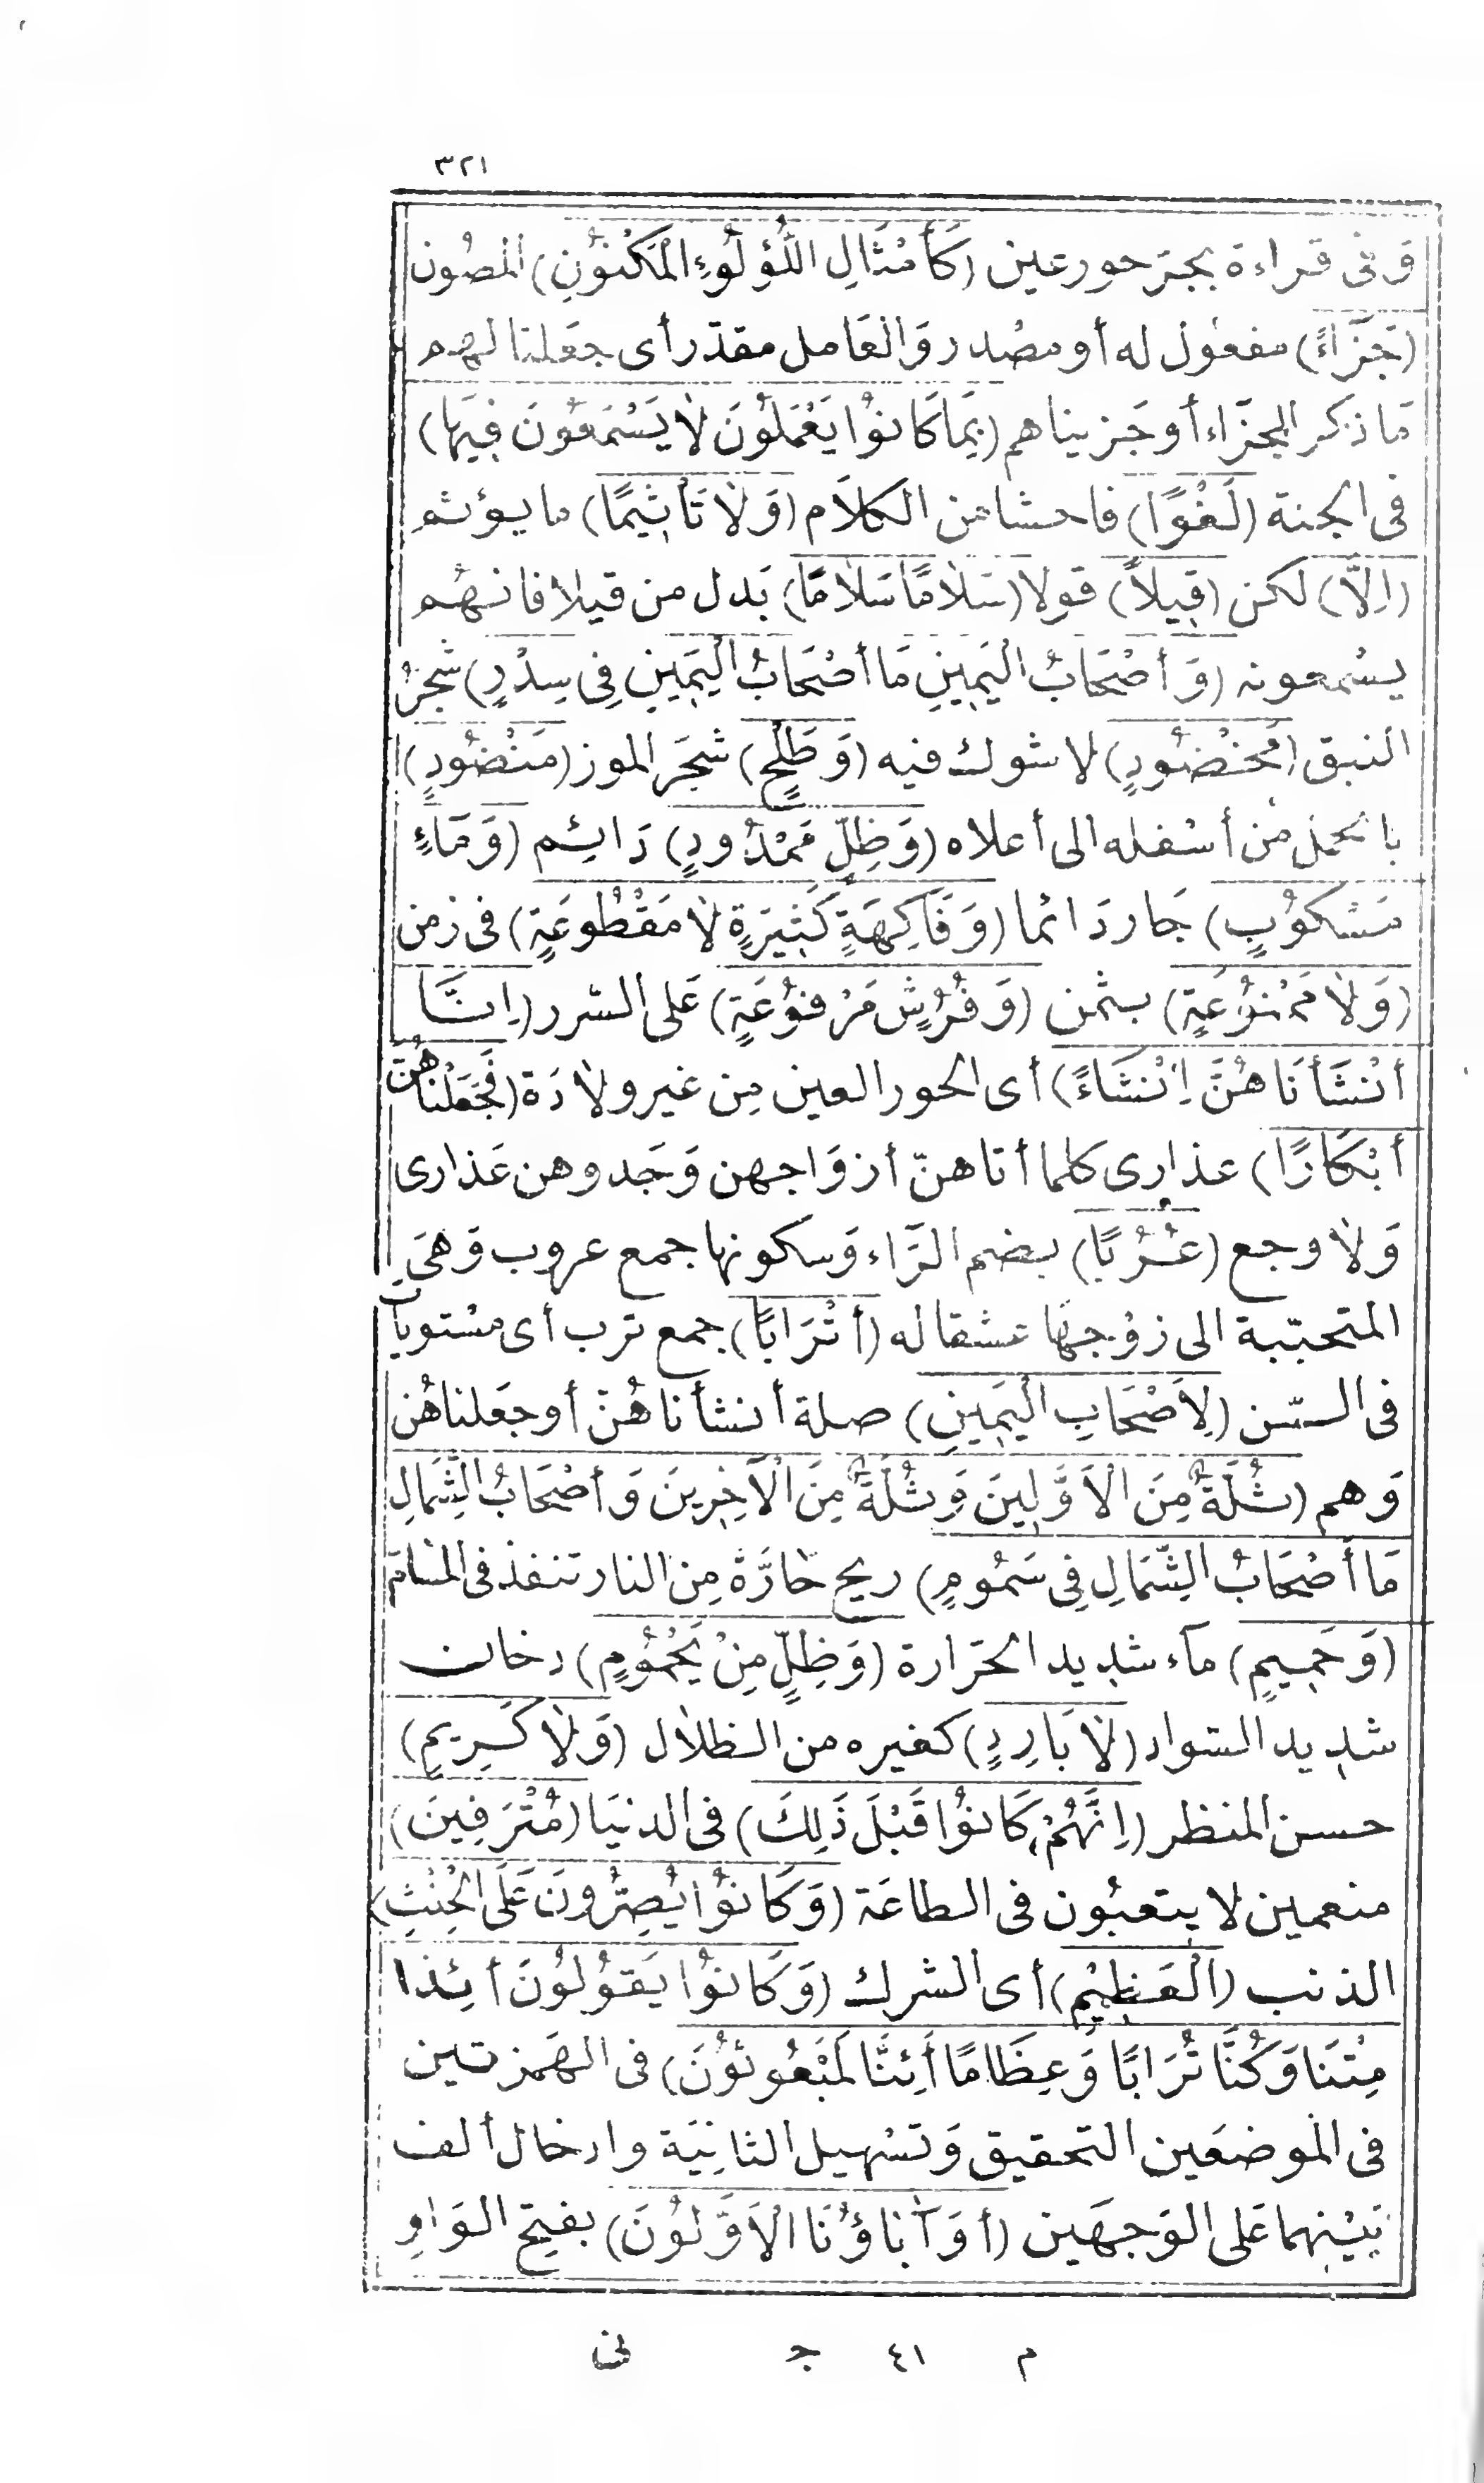 ٣٢١
وَفى قراءة بجرّ حور عين (كَأَمْثَالِ اللُّؤْلُوءِ الْمَكْنُوْنِ) المصُون
(جَزَآءً) مفعول له أو مصْدر وَالعَامل مقدّر أى جعَلنا لهم
مَا ذكر للجزَآء أو جَزيناهم (بِمَا كَانُوْا يَعْمَلُوْنَ لَا يَسْمَعُوْنَ فِيْهَا)
فى الجنة (لَغْوًا) فاحشا من الكلاَم (وَلَا تَأْثِيْمًا) ما يؤثم
(اِلَّا) لكن (قِيلاً) قولا (سَلَامًا سَلَامًا) بَدل من قيلا فانهُم
يسْمعونه (وَأَصْحَابُ الْيَمِينِ مَا أَصْحَابُ الْيَمِينِ فِى سِدْرٍ) شَجرُ
النبق (مَخْضُوْدٍ) لا شوك فيه (وَطَلْحٍ) شجَر الموز (مَنْضُوْدٍ)
بالحمل من أسْفله الى أعلاه (وَظِلٍّ مَمْدُودٍ) دَائِم (وَمَآءٍ
مَسْكُوْبٍ) جَار دَائما (وَفَاكِهَةٍ كَثِيَرةٍ لَا مَقْطُوعَةٍ) فى زمن
(وَلَا مَمْنُوْعَةٍ) بثمن (وَفُرُشٍ مَرْفُوْعَةٍ) عَلى السّرر (اِنَّا
أَنْشَأْنَاهُنَّ اِنْشَاءً) أى الحور العين مِن غير ولَادَة (فَجَعَلْنَاهُنَّ
أَبْكَارًا) عذارى كلما أتاهنّ أزوَاجهن وَجَدوهن عَذارى
وَلَا وجع (عُرُبًا) بضم الرَّاء وَسكونها جمع عروب وَهىَ
المتحبّبة الى زوْجهَا عشقا له (أَتْرَابًا) جمع ترب أى مسْتويات
فى السّن (لِأَصْحَابِ الْيَمِينِ) صلة أنشأناهُنّ أو جعَلناهُن
وَهم (ثُلَّةٌ مِنَ الْأَوَّلِينَ وَثُلَّةٌ مِنَ الْآخِرِينَ وَأَصْحَابُ الشِّمَالِ
مَا أَصْحَابُ الشِّمَالِ فِى سَمُومٍ) ريح حَارَّة مِن النار تنفذ فى المسَامّ
(وَحَمِيمٍ) مآء شديد الحرَارة (وَظِلٍّ مِنْ يَحْمُوْمٍ) دخان
شديد السّواد (لَا بَارِدٍ) كغيره من الظلَال (وَلَا كَرِيمٍ)
حسن المنظر (اِنَّهُمْ كَانُوْا قَبْلَ ذَلِكَ) فى الدنيَا (مُتْرَفِينَ)
منعمين لا يتعبُون فى الطاعَة (وَكَانُوْا يُصِرُّونَ عَلَى الْحِنْثِ)
الذنب (الْعَظِيْمِ) أى الشرك (وَكَانُوْا يَقُوْلُوْنَ أَئِذَا
مِتْنَا وَكُنَّا تُرَابًا وَعِظَامًا أَئِنَّا لَمَبْعُوْثُوْنَ) فى الهَمزتين
فى الموضعَين التحقيق وَتسْهيل الثانِيَة وادخال ألف
بَيْنهما عَلى الوَجهَين (أَوَ آبَاؤُنَا الْأَوَّلُوْنَ) بفتح الوَاوِ
م ٤١ جـ نى